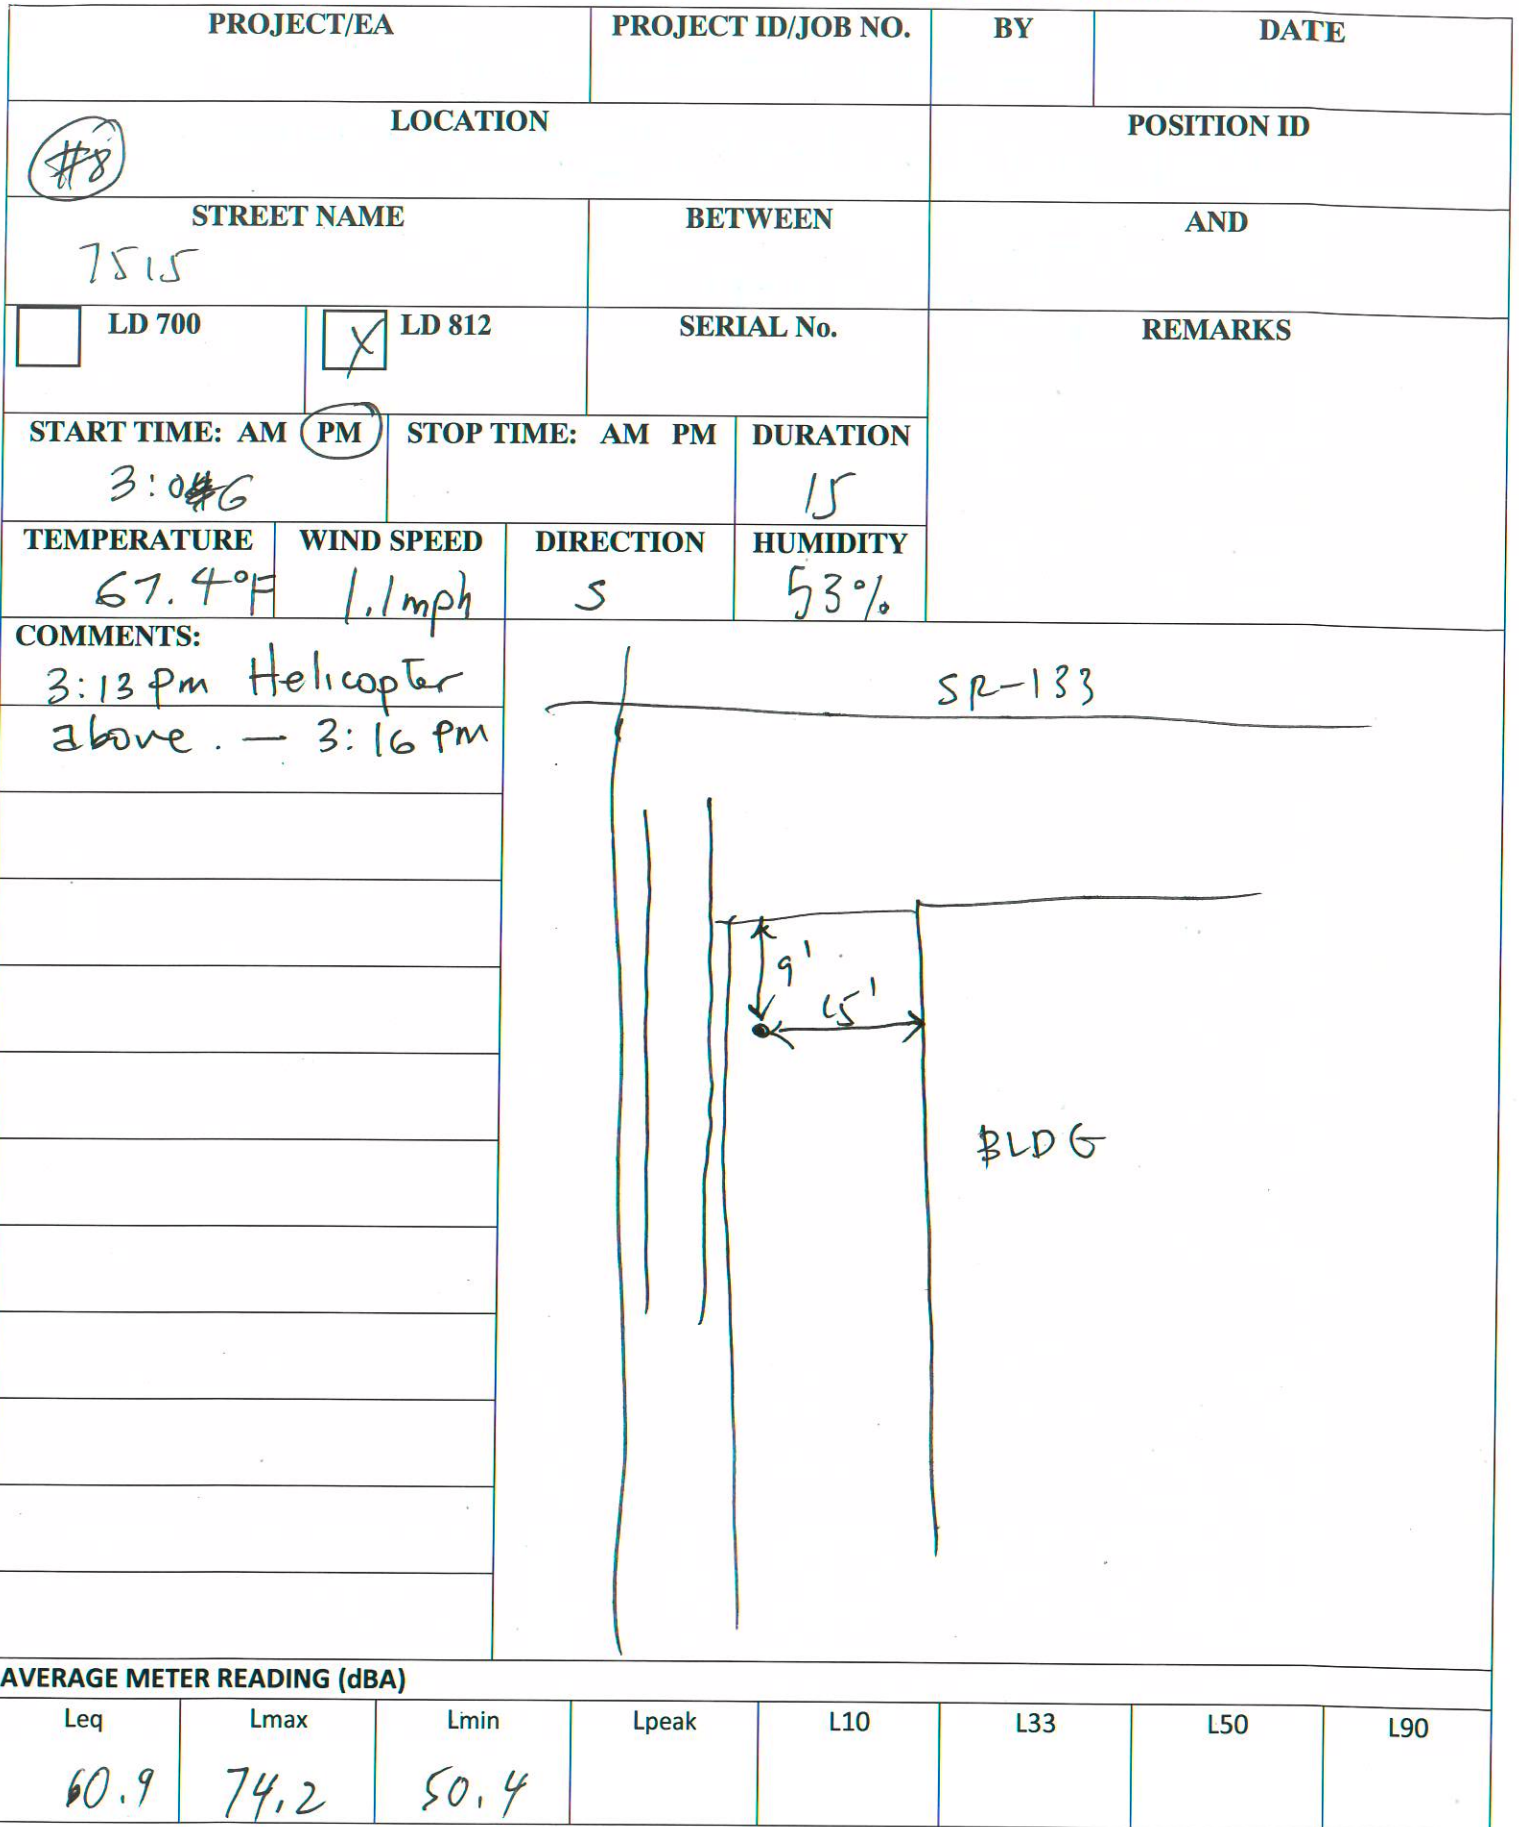 PROJECT/EA PROJECT ID/JOB NO. BY DATE
LOCATION POSITION ID
#8
STREET NAME BETWEEN AND
7515
LD 700 X LD 812 SERIAL No. REMARKS
START TIME: AM PM STOP TIME: AM PM DURATION
3:06 15
TEMPERATURE WIND SPEED DIRECTION HUMIDITY
67.4°F 1.1mph S 53%
COMMENTS:
3:13 pm Helicopter
above. — 3:16 pm
SR-133
9'
15'
BLDG
AVERAGE METER READING (dBA)
Leq Lmax Lmin Lpeak L10 L33 L50 L90
60.9 74.2 50.4